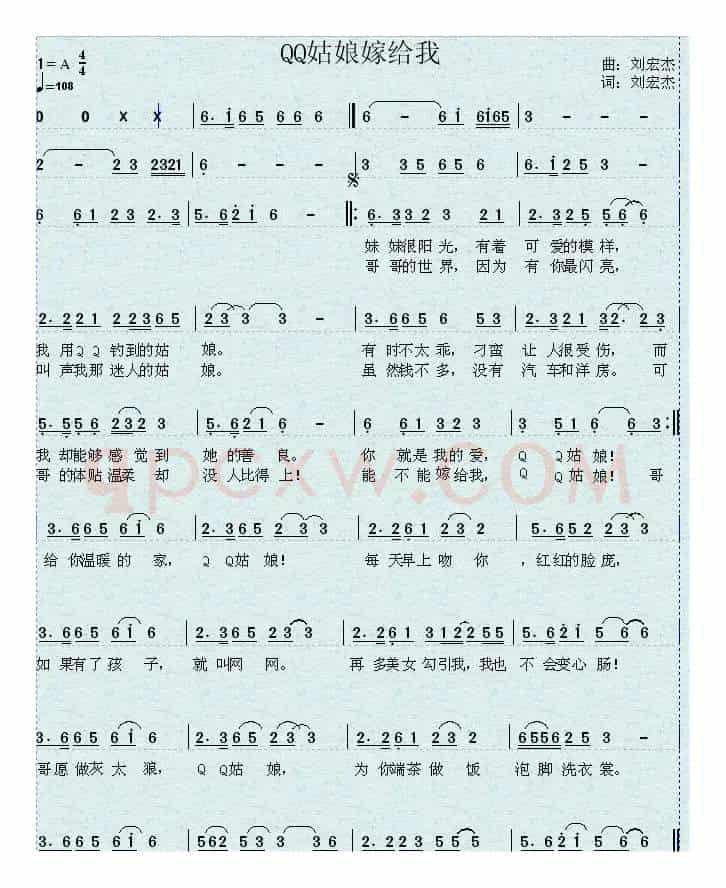 QQ姑娘嫁给我
1=A 4/4
曲：刘宏杰
♩=108
词：刘宏杰
0 0 X X | 6. i 6 5 6 6 6 ‖ 6 - 6 i 6165 | 3 - - -
2 - 2 3 2321 | 6 - - - | 3 3 5 6 5 6 | 6. i 2 5 3 -
6 6 1 2 3 2. 3 | 5. 6 2 i 6 - ‖: 6. 3 3 2 3 2 1 | 2. 3 2 5 5 6 6
妹 妹很阳 光，有着 可 爱的模 样，
哥 哥的世 界，因为 有 你最闪 亮，
2. 2 2 1 2 2 3 6 5 | 2 3 3 3 - | 3. 6 6 5 5 3 | 2. 1 2 3 3 2. 2
我 用Q Q 钓到的姑 娘。 有 时不太 乖，刁蛮 让 人很受 伤，而
叫 声我那 迷人的姑 娘。 虽 然钱不 多，没有 汽 车和洋 房。可
5. 5 5 6 2 3 2 3 | 5. 5 2 1 6 - | 6 6 1 2 3 3 | 3 5 1 6 6 3 :‖
我 却能够 感 觉 到 她 的善 良。 你 就是我的 爱， Q Q 姑 娘！
哥 的体贴 温柔 却 没 人比得 上！ 能 不能嫁给 我， Q Q 姑 娘！ 哥
3. 6 6 5 6 i 6 | 2. 3 6 5 3 3 | 2. 2 6 1 2 3 2 | 5. 6 5 2 2 3 3
给 你温暖 的 家， Q Q姑 娘！ 每 天早上 吻 你 ，红 红的脸 庞，
3. 6 6 5 6 i 6 | 2. 3 6 5 3 3 | 2. 2 6 1 3 1 2 2 5 5 | 5. 6 2 i 5 6 6
如 果有了 孩 子， 就 叫网 网。 再 多美女 勾引我，我也 不 会变心 肠！
3. 6 6 5 6 i 6 | 2. 3 6 5 2 3 3 | 2. 2 6 1 2 3 2 | 6556 2 5 3 -
哥 愿做灰 太 狼， Q Q姑 娘， 为 你端茶 做 饭 泡 脚 洗衣 裳。
3. 6 6 5 6 i 6 | 562 5 3 3 3 6 | 2. 2 2 3 5 5 5 | 5. 6 2 i 5 6 6 ‖
qpcxw.com